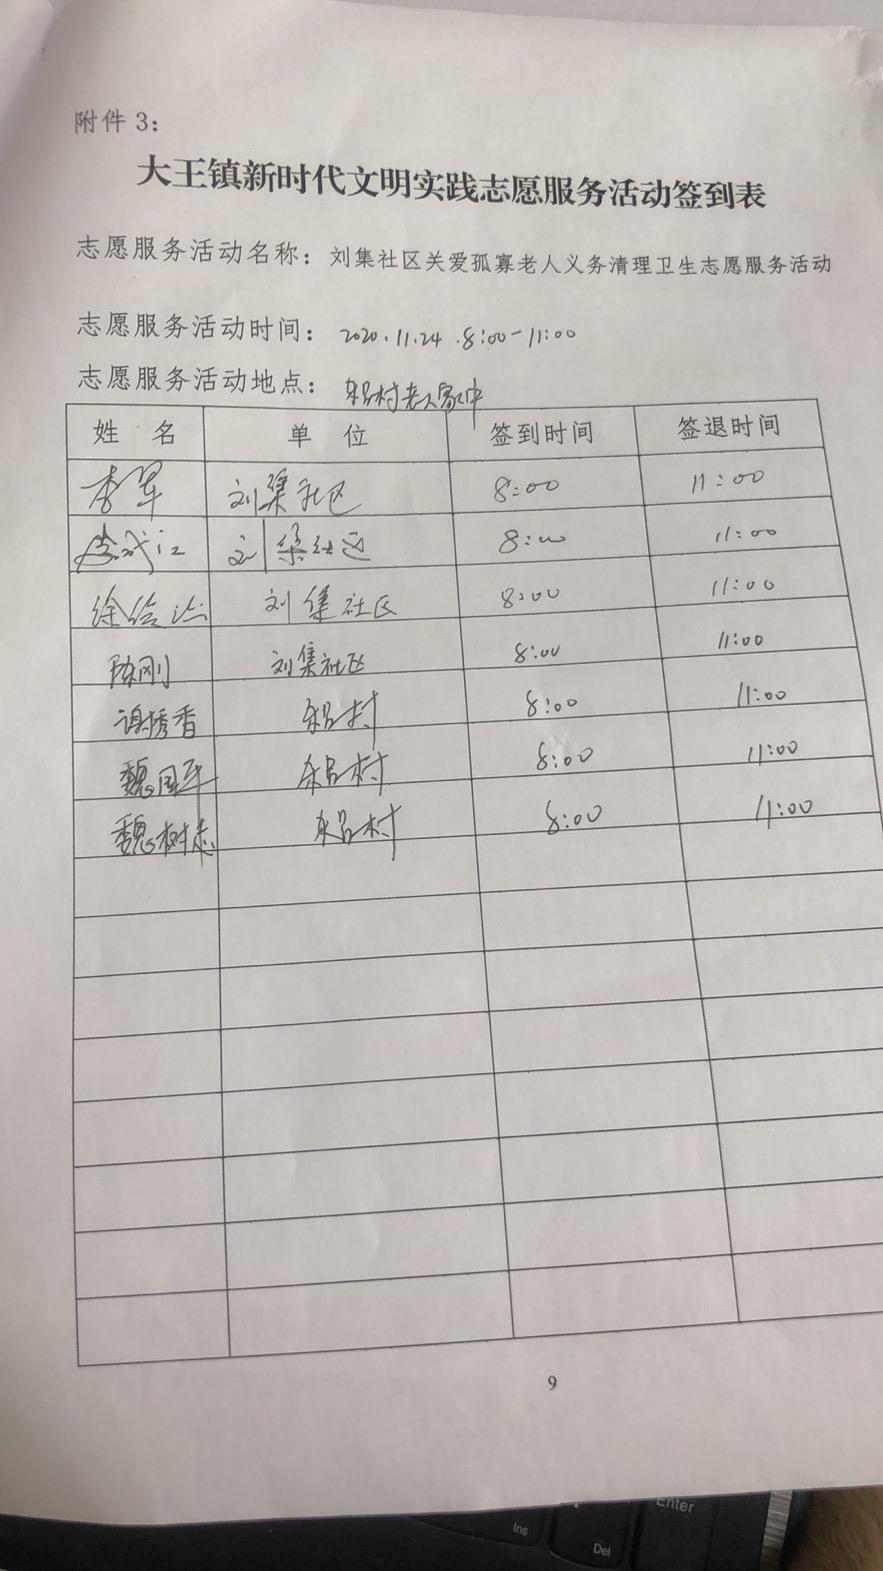 附件 3：
大王镇新时代文明实践志愿服务活动签到表
志愿服务活动名称：刘集社区关爱孤寡老人义务清理卫生志愿服务活动
志愿服务活动时间：2020.11.24.8:00-11:00
志愿服务活动地点：村老人家中
姓 名 单 位 签到时间 签退时间
李军 刘集社区 8:00 11:00
刘集社区 8:00 11:00
徐 刘集社区 8:00 11:00
陈刚 刘集社区 8:00 11:00
谢秀香 村 8:00 11:00
魏国平 村 8:00 11:00
魏树志 村 8:00 11:00
9
Enter
Ins
Del